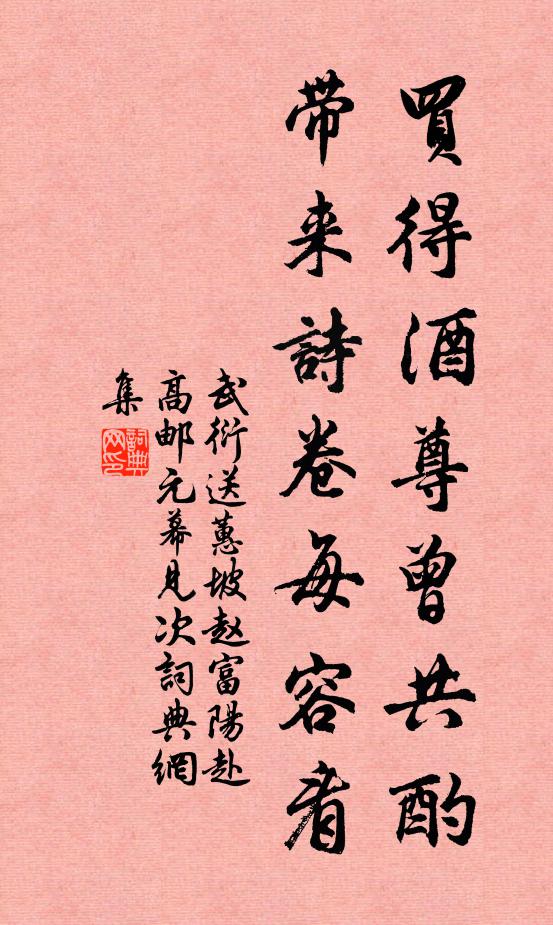 買得酒尊曾共酌
带来詩卷每容看
武衍送蕙坡赵富陽赴
高邮元幕見次詞典網
集
詞典网印